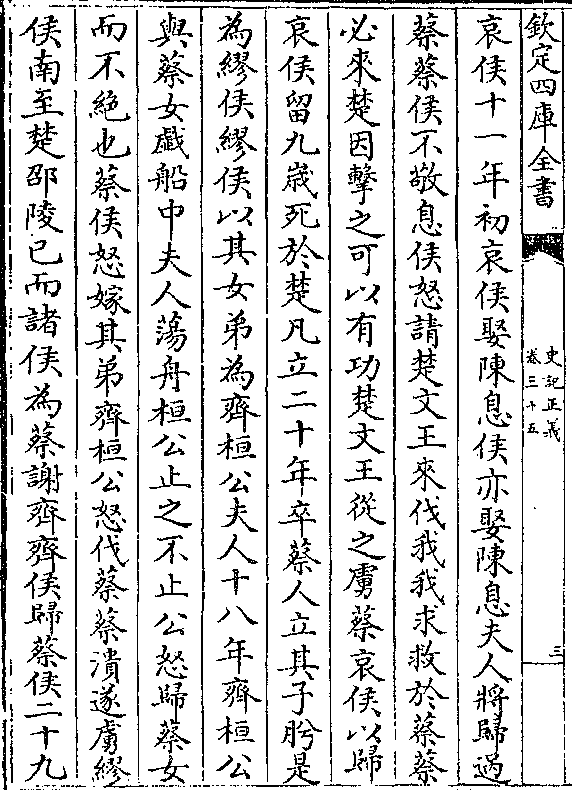 欽定四庫全書
史記正義
卷三十五
三
哀侯十一年初哀侯娶陳息侯亦娶陳息夫人將歸過
蔡蔡侯不敬息侯怒請楚文王來伐我我求救於蔡蔡
必來楚因擊之可以有功楚文王從之虜蔡哀侯以歸
哀侯留九嵗死於楚凡立二十年卒蔡人立其子肸是
為繆侯繆侯以其女弟為齊桓公夫人十八年齊桓公
與蔡女戯船中夫人蕩舟桓公止之不止公怒歸蔡女
而不絶也蔡侯怒嫁其弟齊桓公怒伐蔡蔡潰遂虜繆
侯南至楚邵陵已而諸侯為蔡謝齊齊侯歸蔡侯二十九